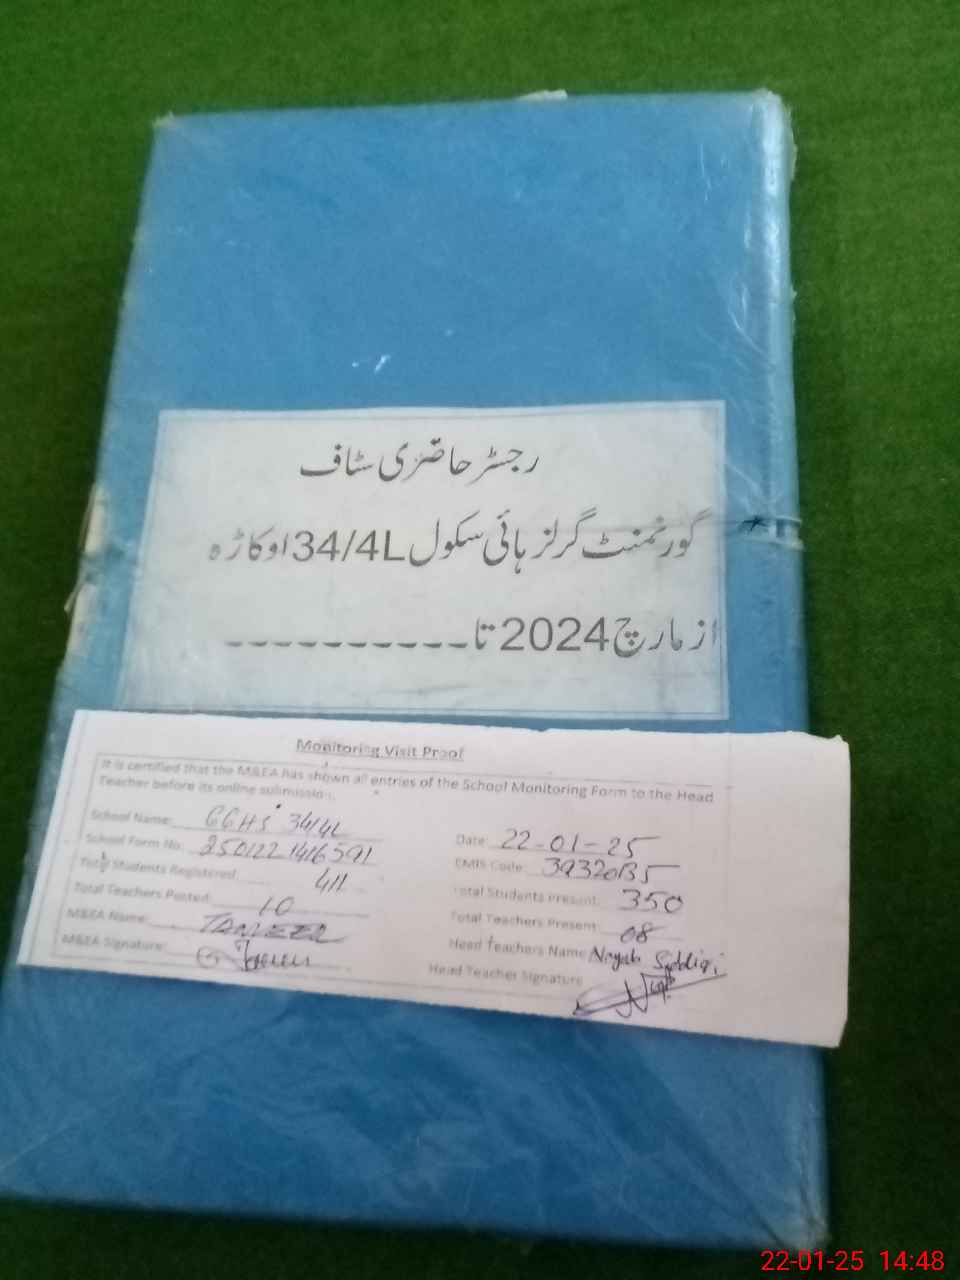 رجسٹر حاضری سٹاف
گورنمنٹ گرلز ہائی سکول 34/4L اوکاڑہ
از مارچ 2024 تا ----------
Monitoring Visit Proof
It is certified that the M&EA has shown all entries of the School Monitoring Form to the Head
Teacher before its online submission.
School Name: GGHS 34/4L
Date: 22-01-25
School Form No: 2501221416591
EMIS Code: 39320135
Total Students Registered: 411
Total Students Present: 350
Total Teachers Posted: 10
Total Teachers Present: 08
M&EA Name: TANVEER
Head Teachers Name Nayab Siddiqi
M&EA Signature:
Head Teacher Signature
22-01-25 14:48